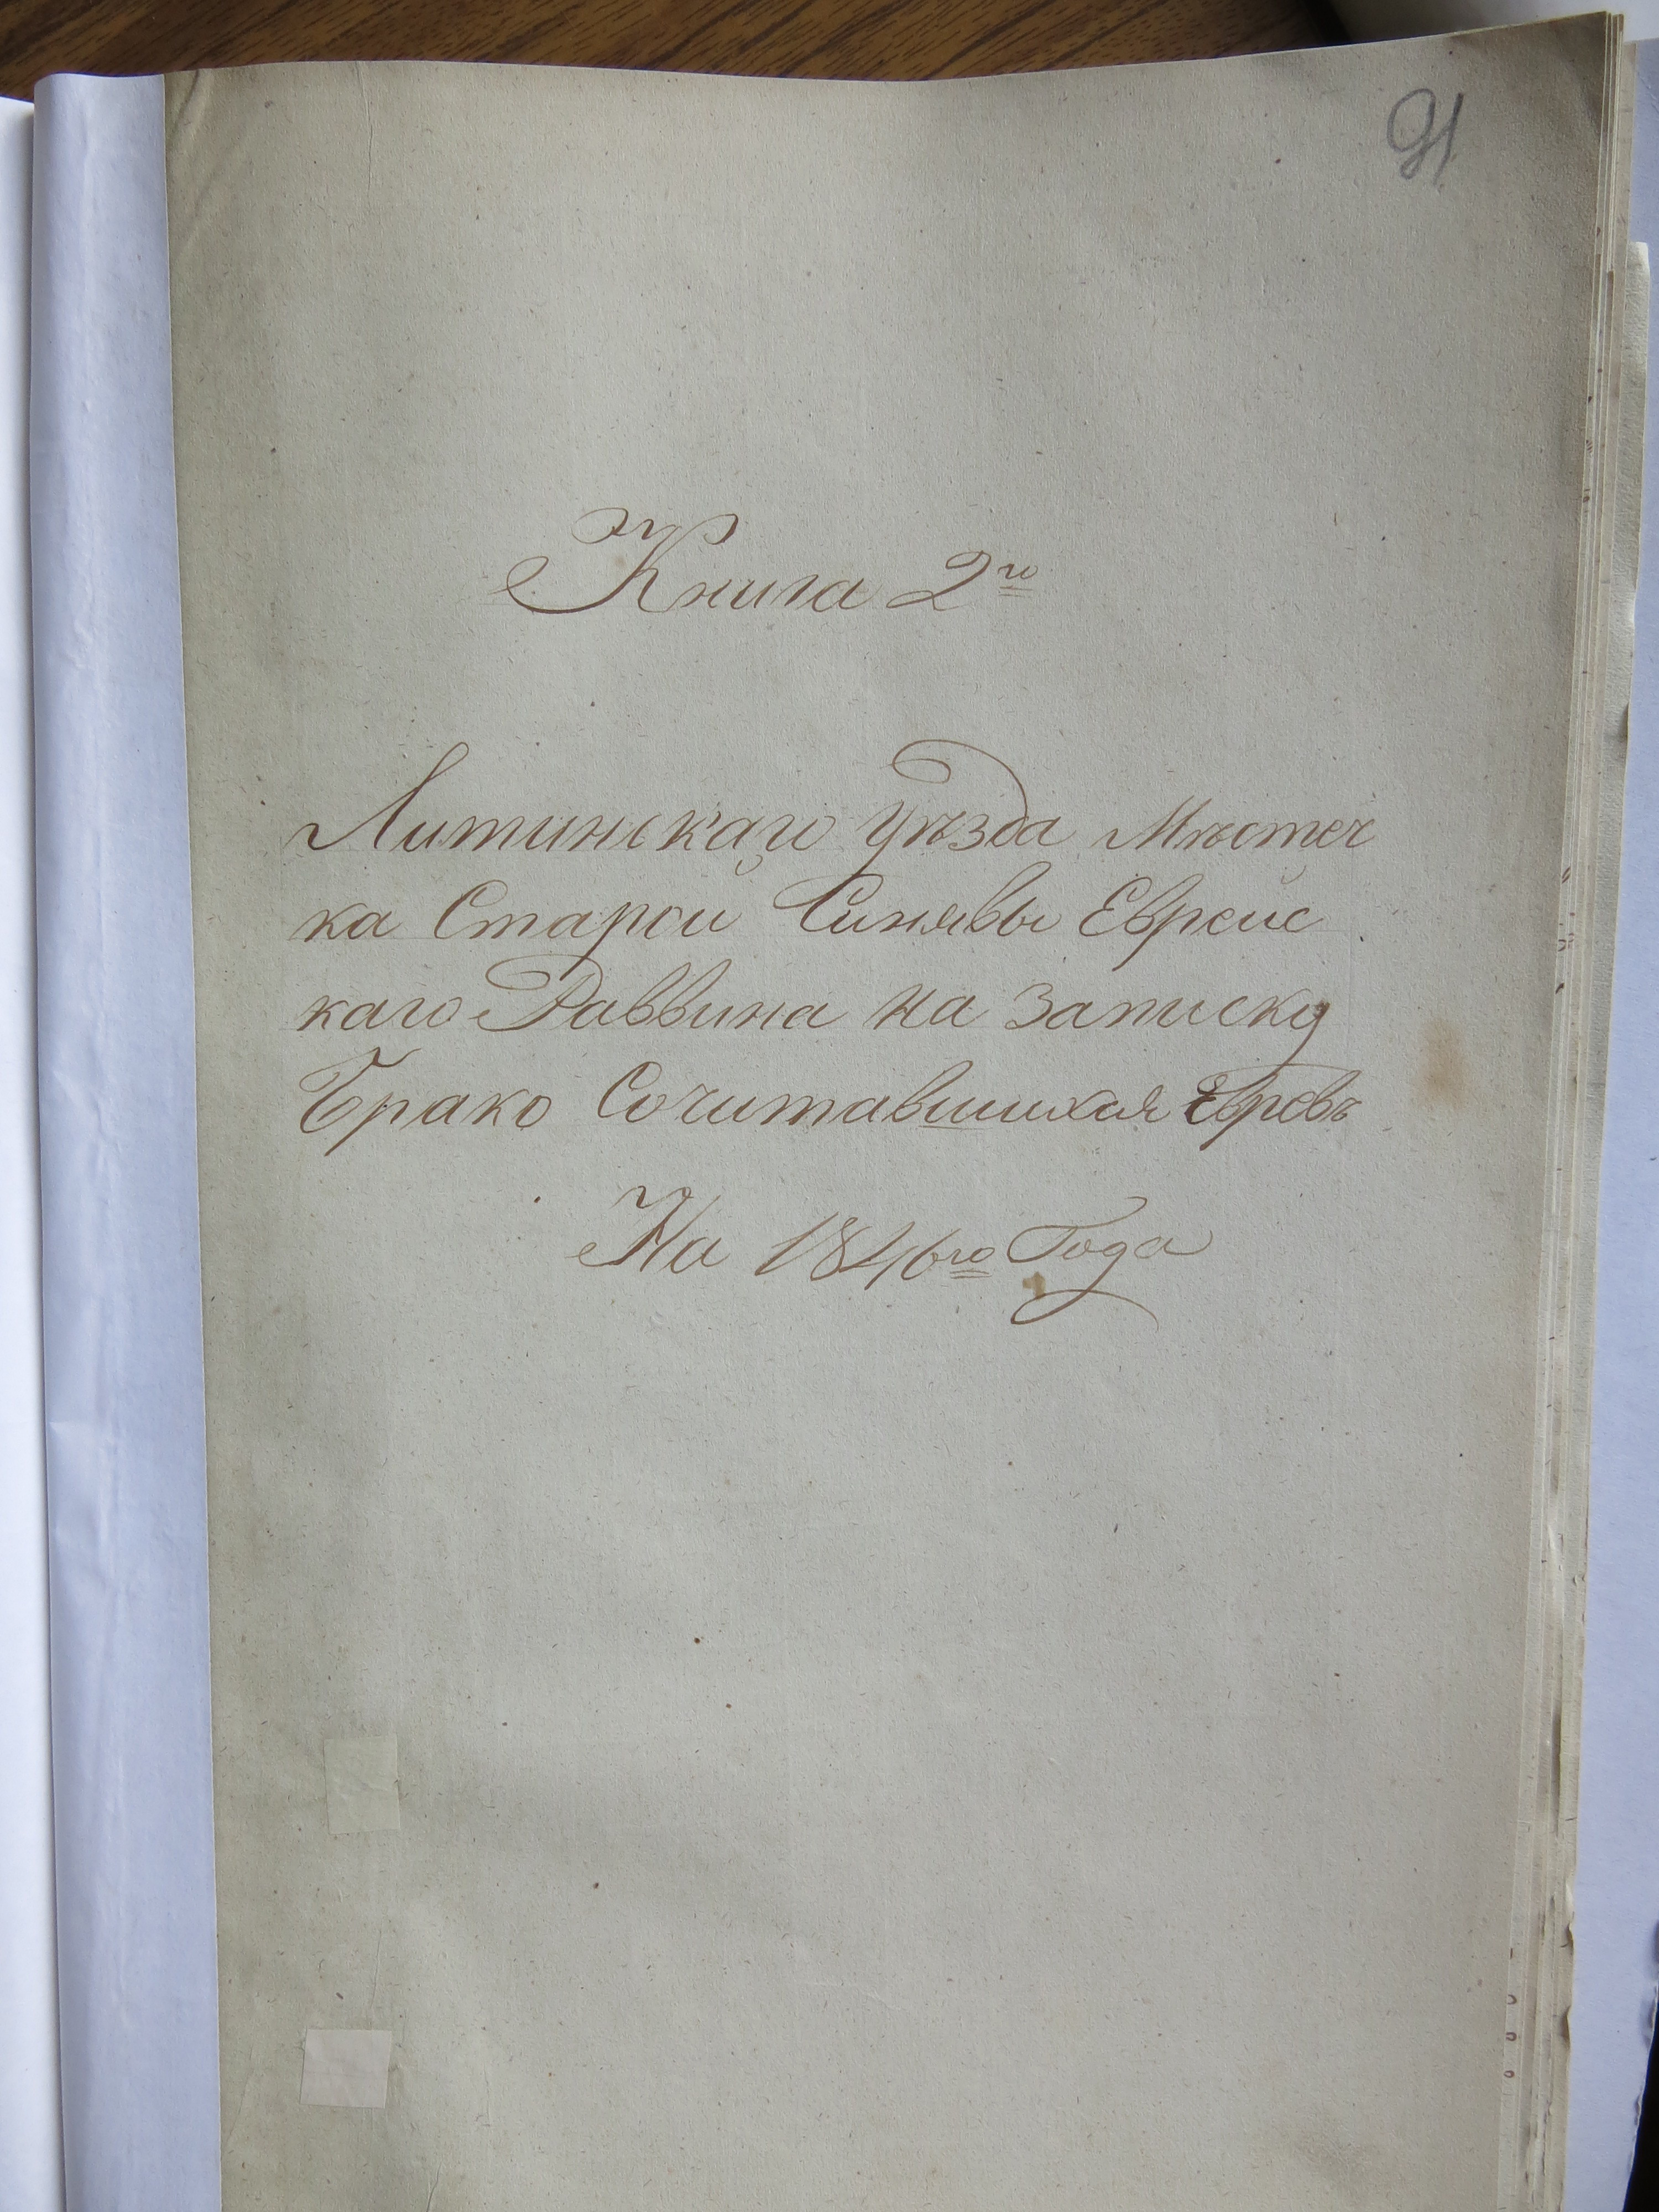 91
Книга 2го
Литинскаго уѣзда Мѣстеч
ка Старой Синявы Еврейс
каго Раввина на записку
Брако Сочитавшихся Евревъ
На 1846го Года